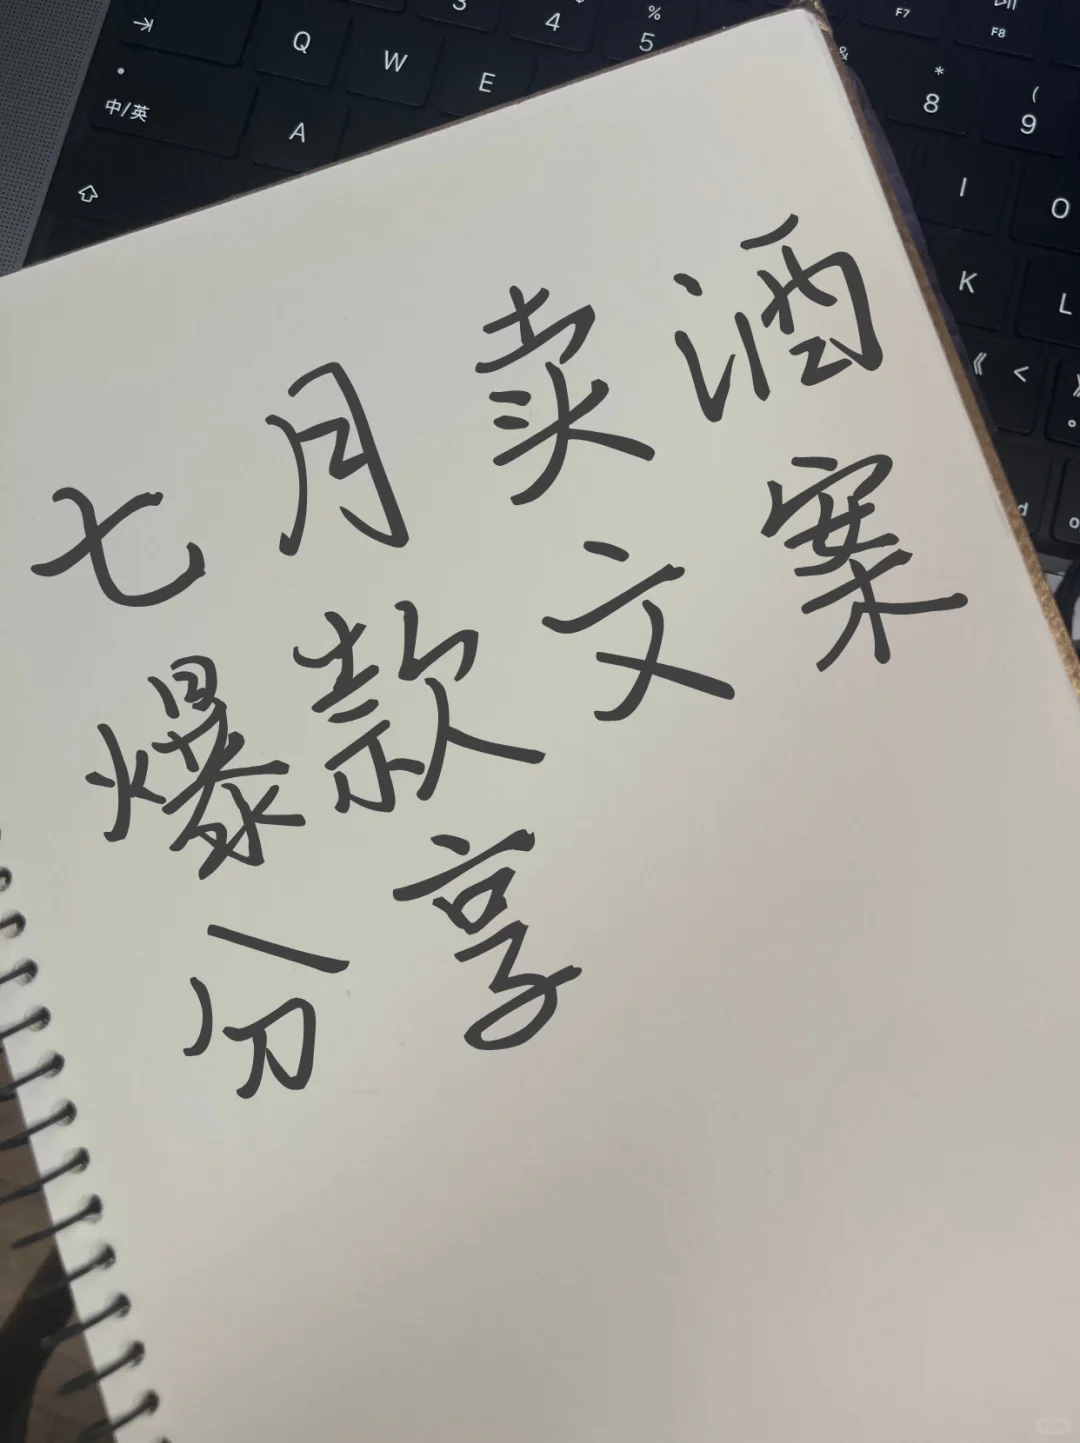 3 4 % 5 F7 F8
Q W E & * 8 ( 9
中/英 A I O
K L
《 < 》 。
七月卖酒
爆款文案
分享